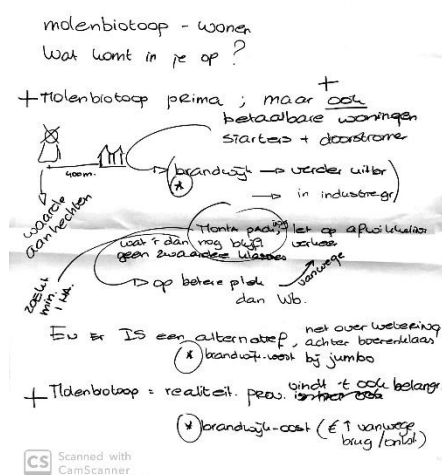 molenbiotoop - wonen
Wat komt in je op?
+ Molenbiotoop prima ; maar ook
+
betaalbare woningen
starters + doorstromer
400m.
brandwijk → verder uitbr
*
→ in industriegr
waarde
aanhechten
let op afwikkeling
verkeer
wat r dan nog blijft
geen zwaardere klasse
zoekt
min.
1 HA.
→ op betere plek
dan Wb.
vanwege
En er IS een alternatief, net over wetering
achter boerenklaas
* brandwijk-oost bij jumbo
+ Molenbiotoop = realiteit. prov. vindt 't ook belangr.
* brandwijk-oost (€ ↑ vanwege
brug / ontsl)
CS Scanned with
CamScanner